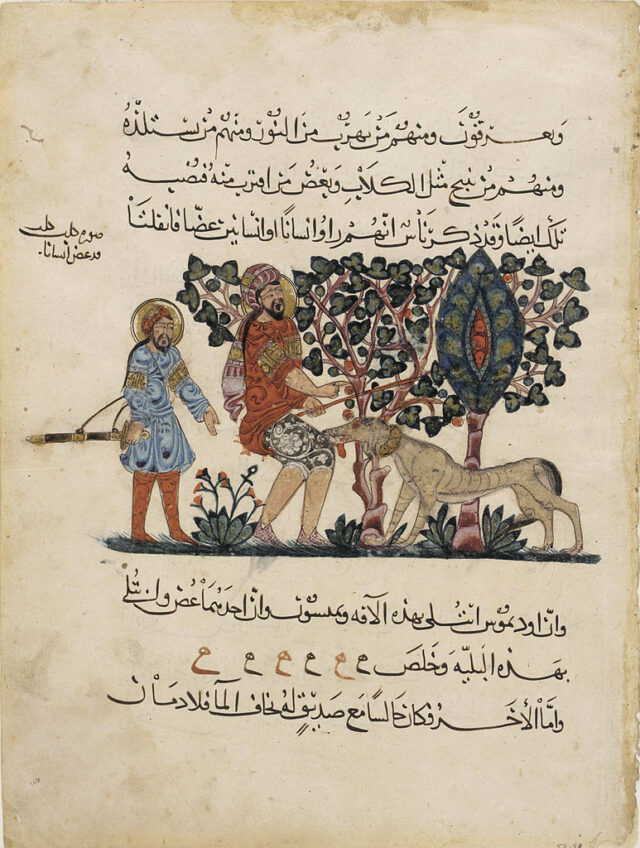 ويعرقون ومنهم من يهرب من النور ومنهم من يستلذه
ومنهم من ينبح مثل الكلاب وبعض من اقترب منه فصيبه
تلك ايضًا وقد ذكر ناس انهم راوا انسانًا او انسانين عضّا فانفلتا
صورة كلب كلب
قد عض انسانا
وانّ اوديموس ابتلى بهذه الآفه وان احدهما عض وابتلي
بهذه البليّه وخلص ه ه ه ه ه ه
وامّا الأخر فكان جالسًا مع صديق له يخاف المآ فلا دمان